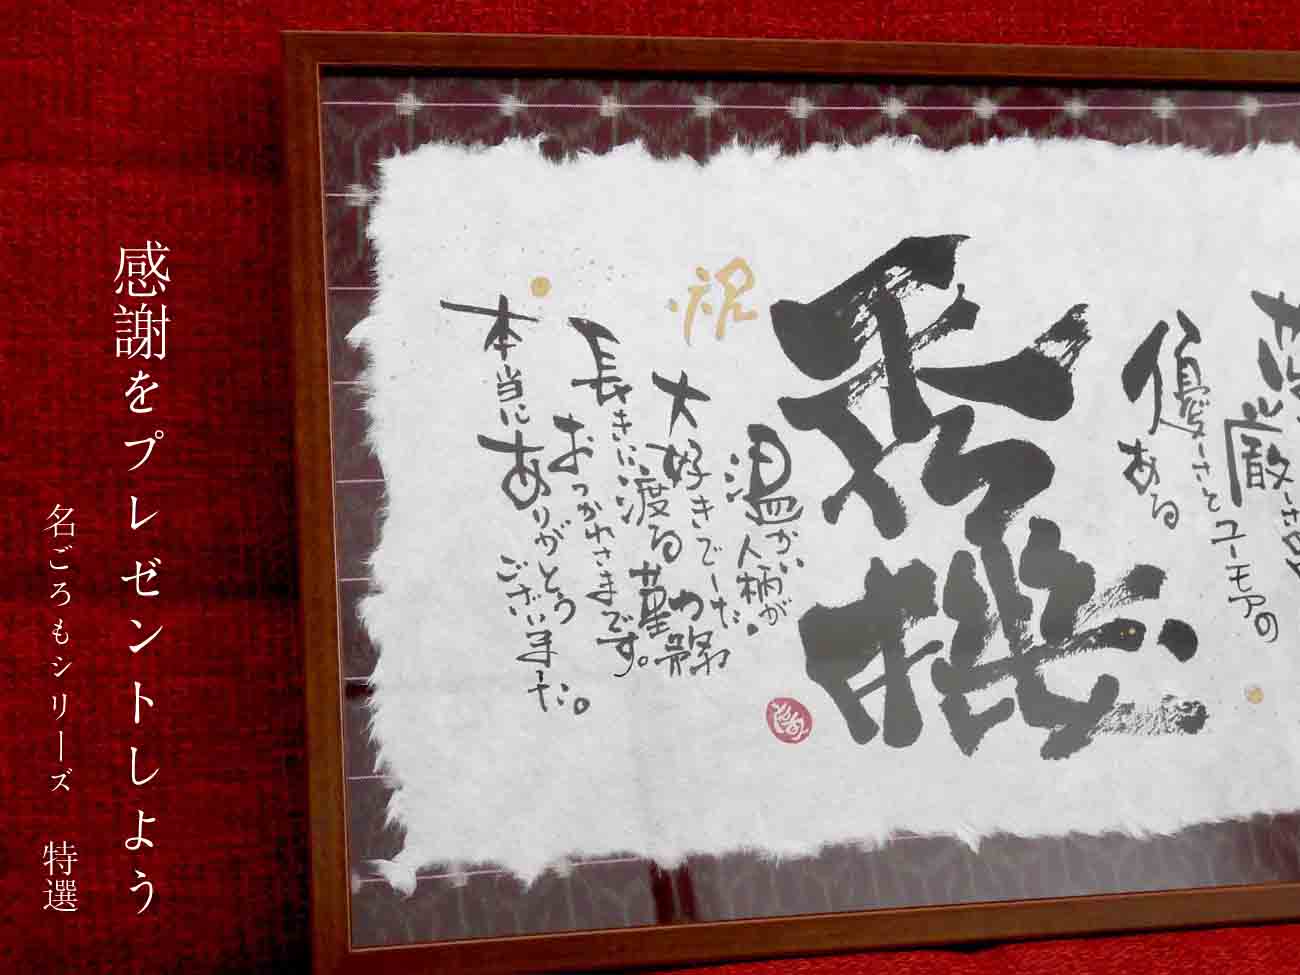 厳しさ
優しさとユーモアの
ある
秀機
温かい人柄が
大好きでした。
祝
長きに渡る勤務
おつかれさまです。
本当に
ありがとう
ございました。
感謝をプレゼントしよう
名ごろもシリーズ　特選